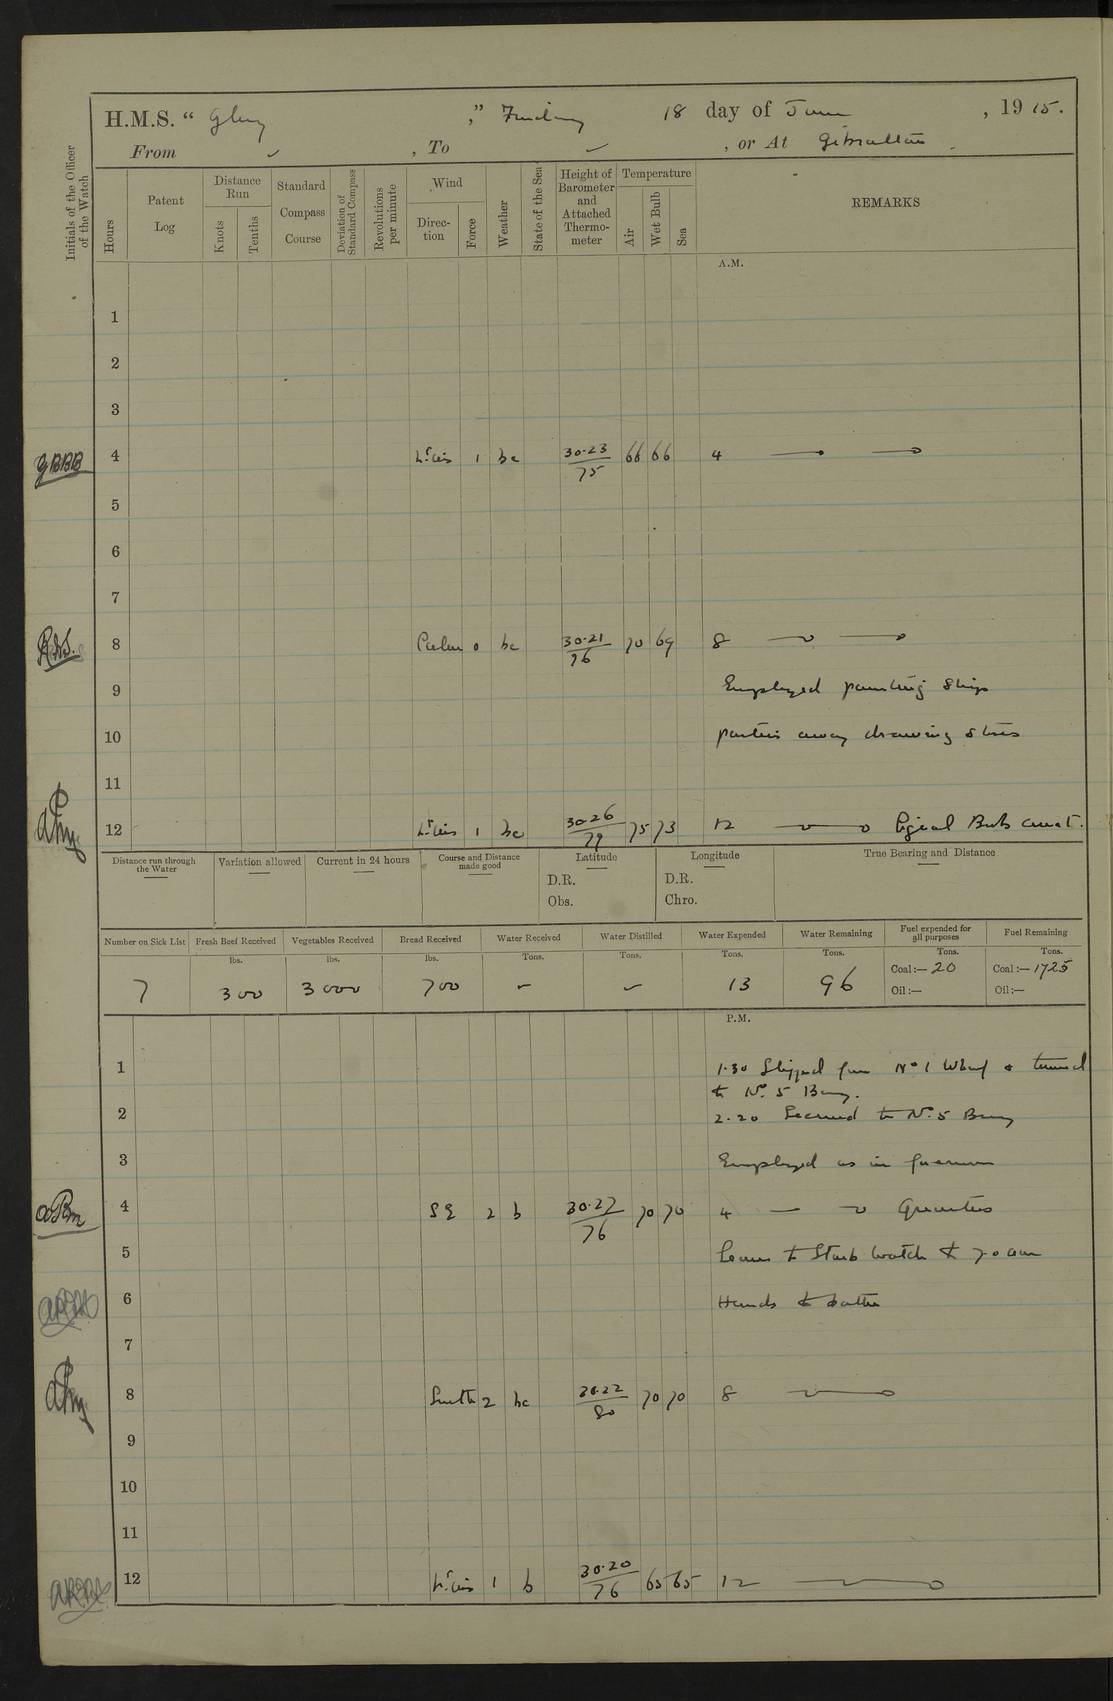 H.M.S. “ Glory ,” Friday 18 day of June , 19 15.
From ✓ , To ✓ , or At Gibraltar .
Initials of the Officer of the Watch
Hours
Patent Log
Distance Run
Knots
Tenths
Standard Compass Course
Deviation of Standard Compass
Revolutions per minute
Wind
Direction
Force
Weather
State of the Sea
Height of Barometer and Attached Thermometer
Temperature
Air
Wet Bulb
Sea
REMARKS
A.M.
1
2
3
4 Lt airs 1 bc 30·23 / 75 66 66 4
5
6
7
8 Calm 0 bc 30·21 / 76 70 69 8
9 Employed painting Ship
10 parties away drawing stores
11
12 Lt airs 1 bc 30·26 / 79 75 73 12
Distance run through the Water
Variation allowed
Current in 24 hours
Course and Distance made good
Latitude
D.R.
Obs.
Longitude
D.R.
Chro.
True Bearing and Distance
Number on Sick List
7
Fresh Beef Received
lbs.
300
Vegetables Received
lbs.
3000
Bread Received
lbs.
700
Water Received
Tons.
Water Distilled
Tons.
Water Expended
Tons.
13
Water Remaining
Tons.
96
Fuel expended for all purposes
Tons.
Coal:— 20
Oil:—
Fuel Remaining
Tons.
Coal:— 1725
Oil:—
P.M.
1 1·30 Slipped from No 1 Wharf & turned
to No. 5 Buoy.
2 2·20 Secured to No. 5 Buoy
3 Employed as in forenoon
4 SE 2 b 30·27 / 76 70 70 4 Quarters
5 Leave to Starb Watch to 7.0 am
6 Hands to bathe
7
8 South 2 bc 30·22 / 80 70 70 8
9
10
11
12 Lt airs 1 b 30·20 / 76 65 65 12